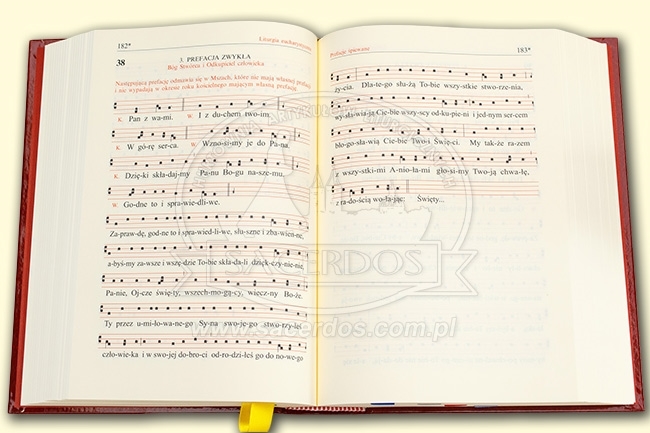 182* Liturgia eucharystyczna
38 3. PREFACJA ZWYKŁA
Bóg Stwórca i Odkupiciel człowieka
Następującą prefację odmawia się w Mszach, które nie mają własnej prefacji
i nie wypadają w okresie roku kościelnego mającym własną prefację.
K. Pan z wa-mi. W. I z du-chem two-im.
K. W gó-rę ser-ca. W. Wzno-si-my je do Pa-na.
K. Dzię-ki skła-daj-my Pa-nu Bo-gu na-sze-mu.
W. Go-dne to i spra-wie-dli-we.
Za-praw-dę, god-ne to i spra-wie-dli-we, słu-szne i zba-wien-ne,
a-byś-my za-wsze i wszę-dzie To-bie skła-da-li dzięk-czy-nie-nie,
Pa-nie, Oj-cze świę-ty, wszech-mo-gą-cy, wiecz-ny Bo-że.
Ty przez u-mi-ło-wa-ne-go Sy-na swo-je-go stwo-rzy-łeś
czło-wie-ka i w swo-jej do-bro-ci od-ro-dzi-łeś go do no-we-go
Prefacje śpiewane 183*
ży-cia. Dla-te-go słu-żą To-bie wszy-stkie stwo-rze-nia,
wy-sła-wia-ją Cie-bie wszy-scy od-ku-pie-ni i jed-nym ser-cem
bło-go-sła-wią Cie-bie Two-i Świę-ci. My tak-że ra-zem
z wszy-stki-mi A-nio-ła-mi gło-si-my Two-ją chwa-łę,
z ra-do-ścią wo-ła-jąc: Święty...
SACERDOS
www.sacerdos.com.pl